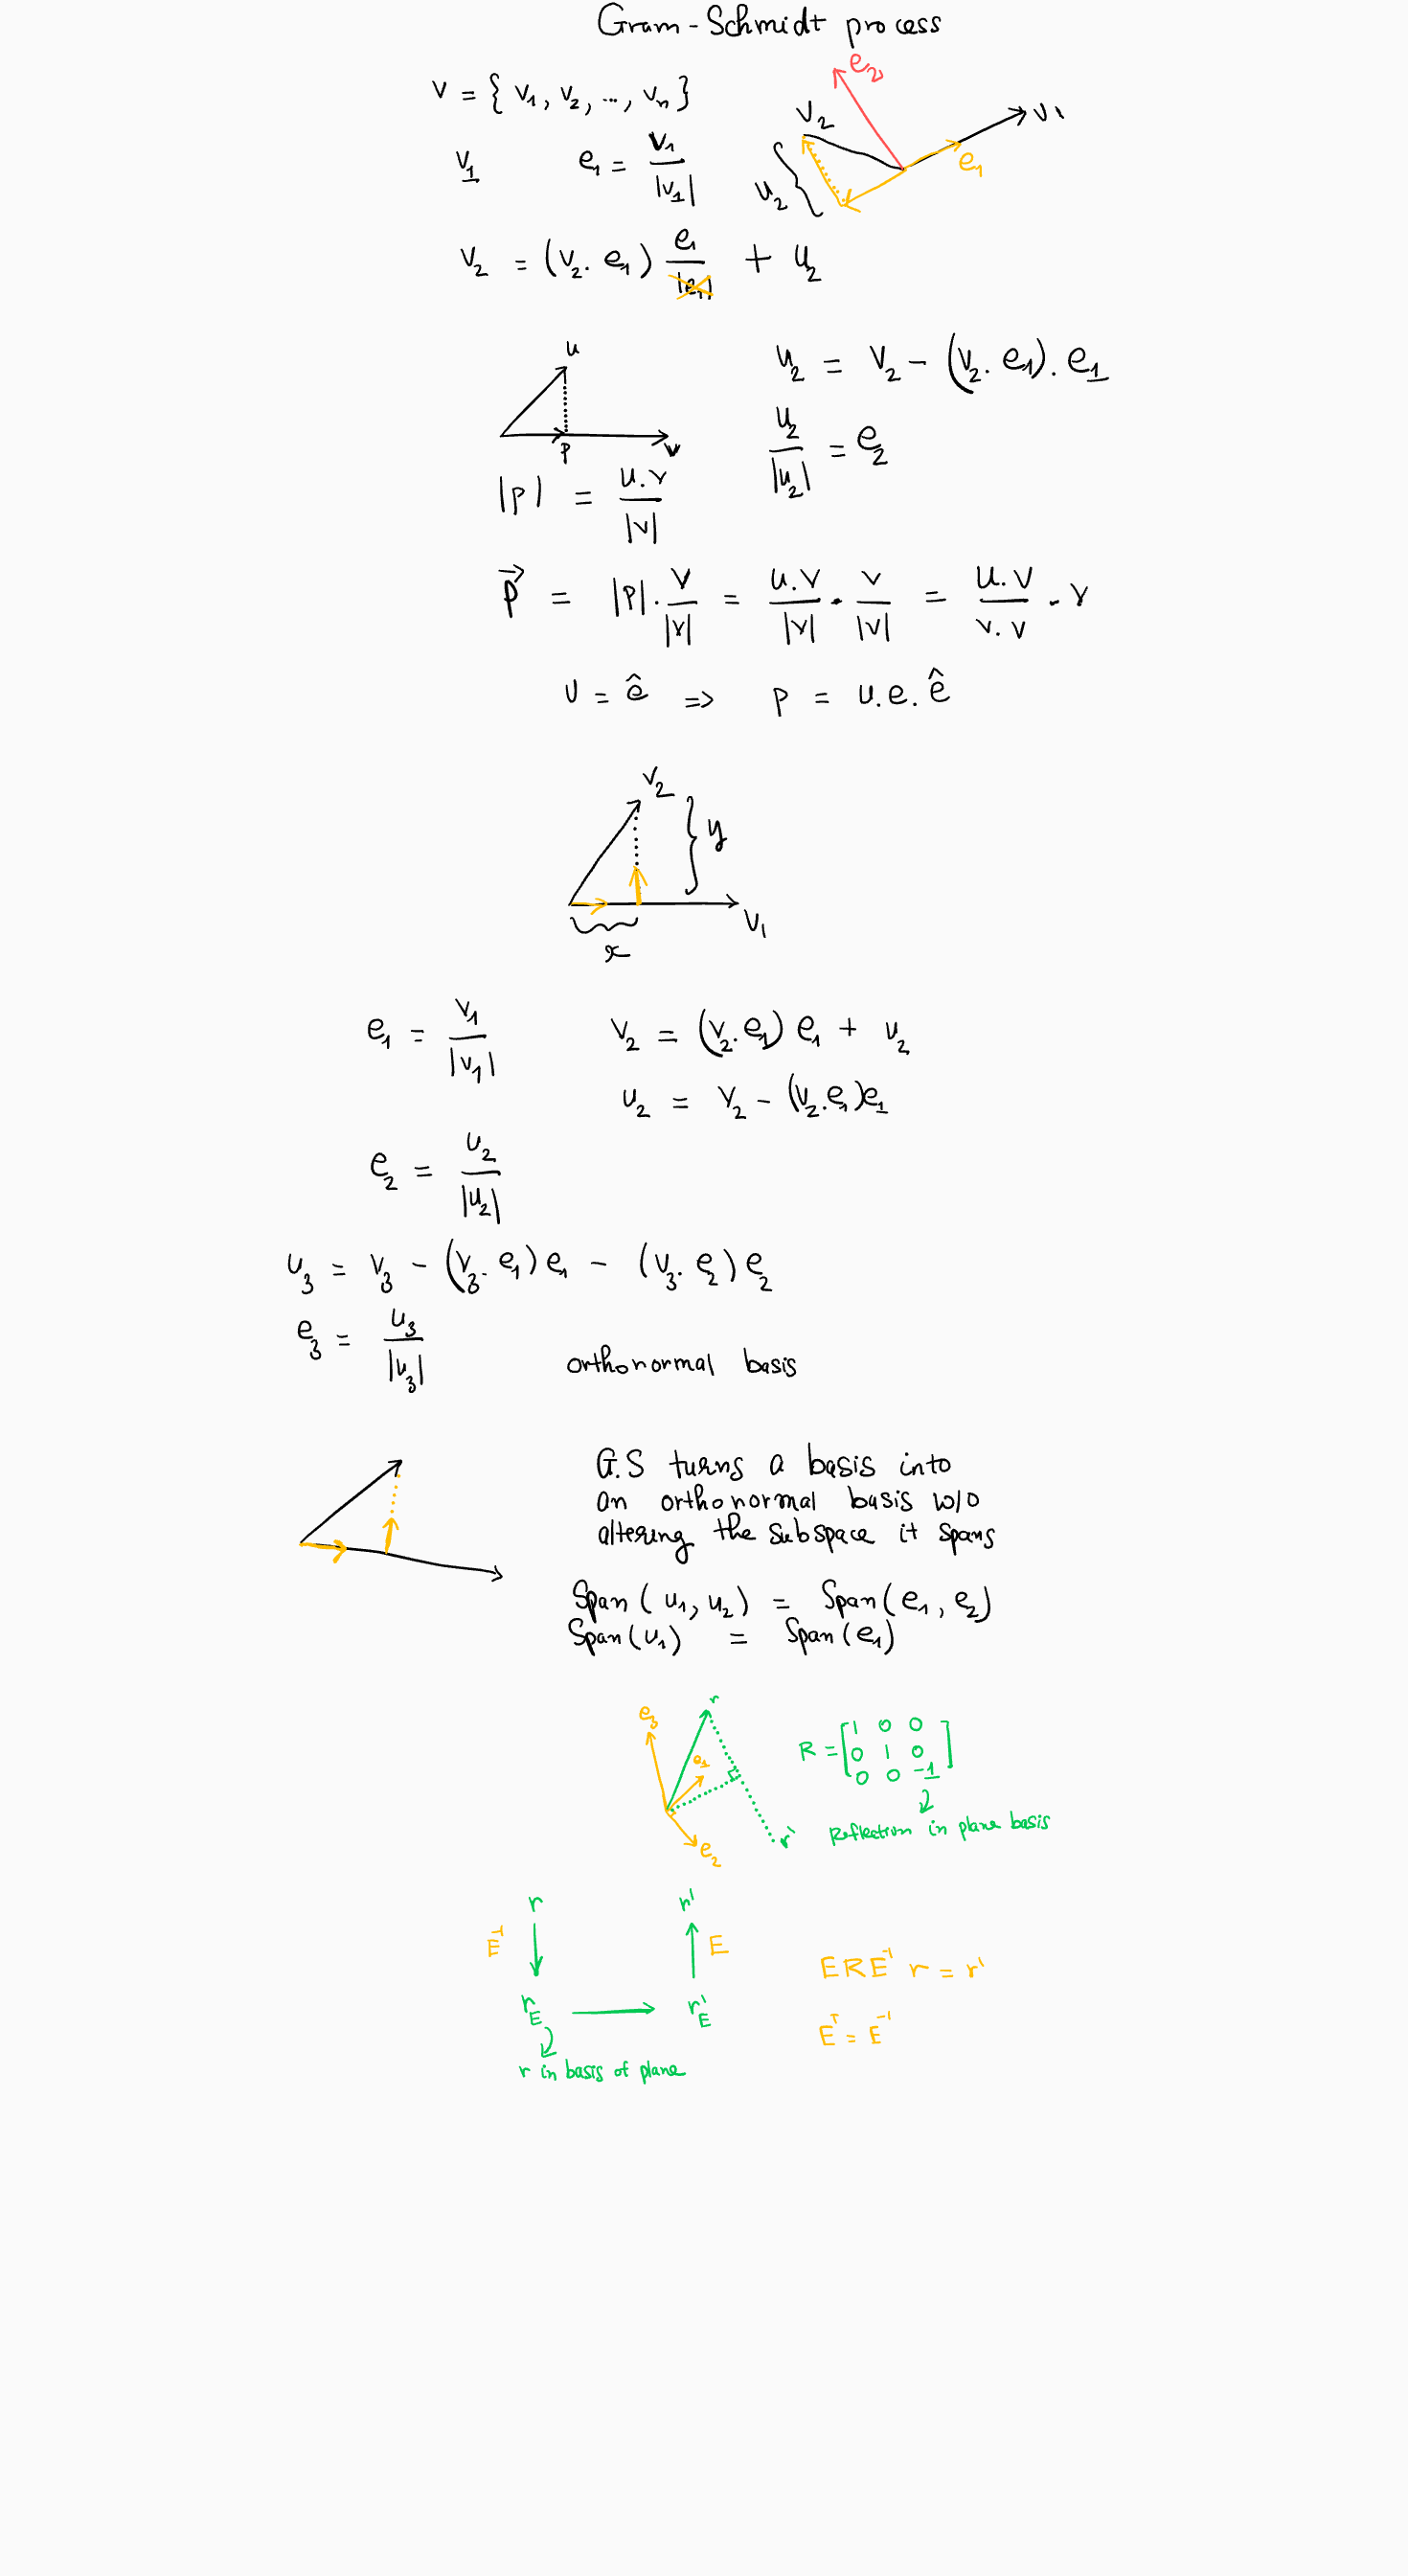 Gram-Schmidt process
v = { v₁, v₂, ..., vₙ }
e₂
v₂
v₁
e₁
u₂
v₁ e₁ = v₁/|v₁|
v₂ = (v₂. e₁) e₁/|e₁| + u₂
u
p
v
u₂ = v₂ - (v₂. e₁). e₁
u₂/|u₂| = e₂
|p| = u.v/|v|
p⃗ = |p|. v/|v| = u.v/|v| . v/|v| = u.v/v.v . v
v = ê => p = u.e.ê
v₂
y
v₁
x
e₁ = v₁/|v₁|
v₂ = (v₂. e₁) e₁ + u₂
u₂ = v₂ - (v₂.e₁)e₁
e₂ = u₂/|u₂|
u₃ = v₃ - (v₃. e₁) e₁ - (v₃. e₂) e₂
e₃ = u₃/|u₃|
orthonormal basis
G.S turns a basis into
an orthonormal basis w/o
altering the subspace it spans
Span( u₁, u₂) = Span( e₁, e₂)
Span(u₁) = Span(e₁)
e₃
r
e₁
e₂
r'
R = [1 0 0
0 1 0
0 0 -1]
Reflection in plane basis
r
r'
E⁻¹
E
r_E
r'_E
r in basis of plane
E R E⁻¹ r = r'
Eᵀ = E⁻¹